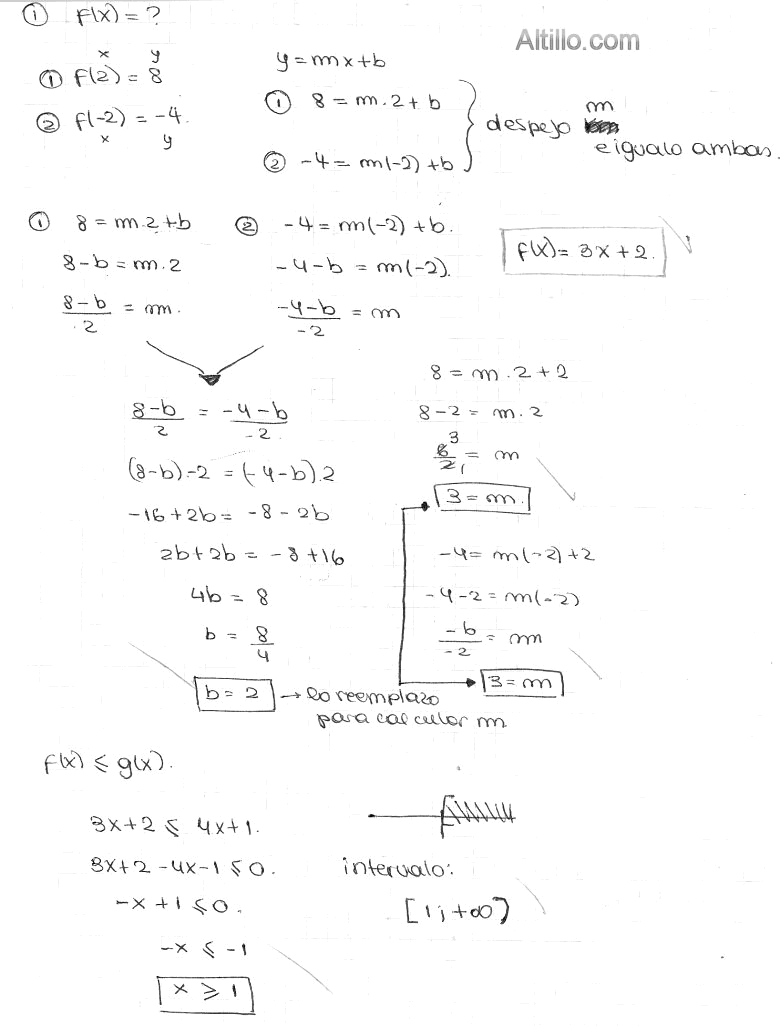 ① f(x) = ?
Altillo.com
x y
① f(2) = 8
② f(-2) = -4.
x y
y = mx+b
① 8 = m.2+b
② -4 = m(-2)+b
despejo m
e igualo ambas.
① 8 = m.2+b
8-b = m.2
8-b/2 = m.
② -4 = m(-2)+b.
-4-b = m(-2).
-4-b/-2 = m
f(x) = 3x+2.
8-b/2 = -4-b/-2.
(8-b).-2 = (-4-b).2
-16+2b = -8-2b
2b+2b = -8+16
4b = 8
b = 8/4
b = 2 → lo reemplazo
para calcular m
8 = m.2+2
8-2 = m.2
6 3/2 1 = m
3 = m.
-4 = m(-2)+2
-4-2 = m(-2)
-6/-2 = m
3 = m
f(x) ≤ g(x).
3x+2 ≤ 4x+1.
3x+2-4x-1 ≤ 0.
-x+1 ≤ 0.
-x ≤ -1
x ≥ 1
intervalo:
[1;+∞)